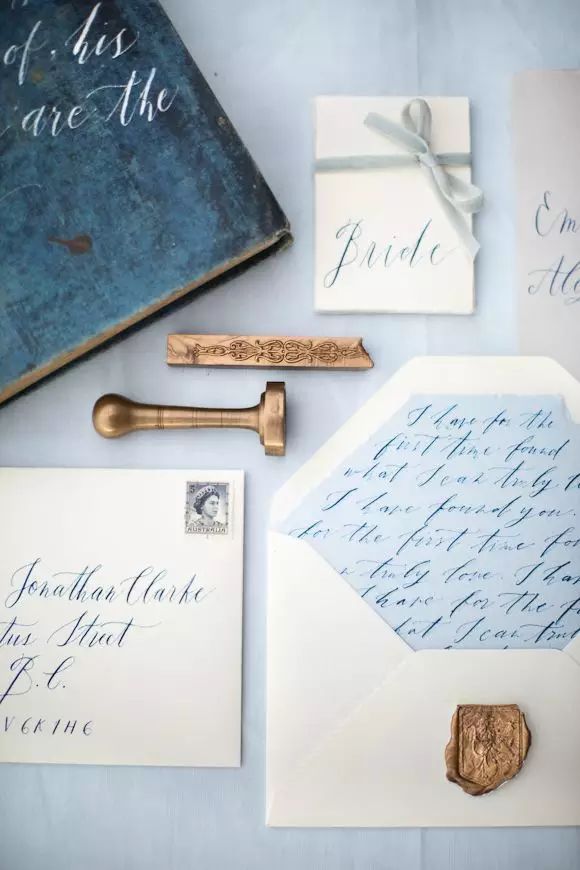 of, his
are the
Bride
Em
I have for the
first time found
what I can truly lo
I have found you.
for the first time fou
n truly love. I hav
I have for the fi
hat I can trul
5
AUSTRALIA
Jonathan Clarke
tus Street
B.C.
V6K1H6